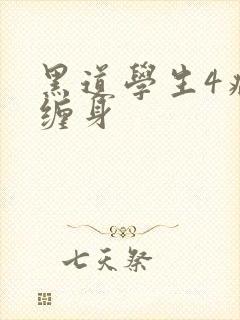 黑道學生4
缠身
七天祭